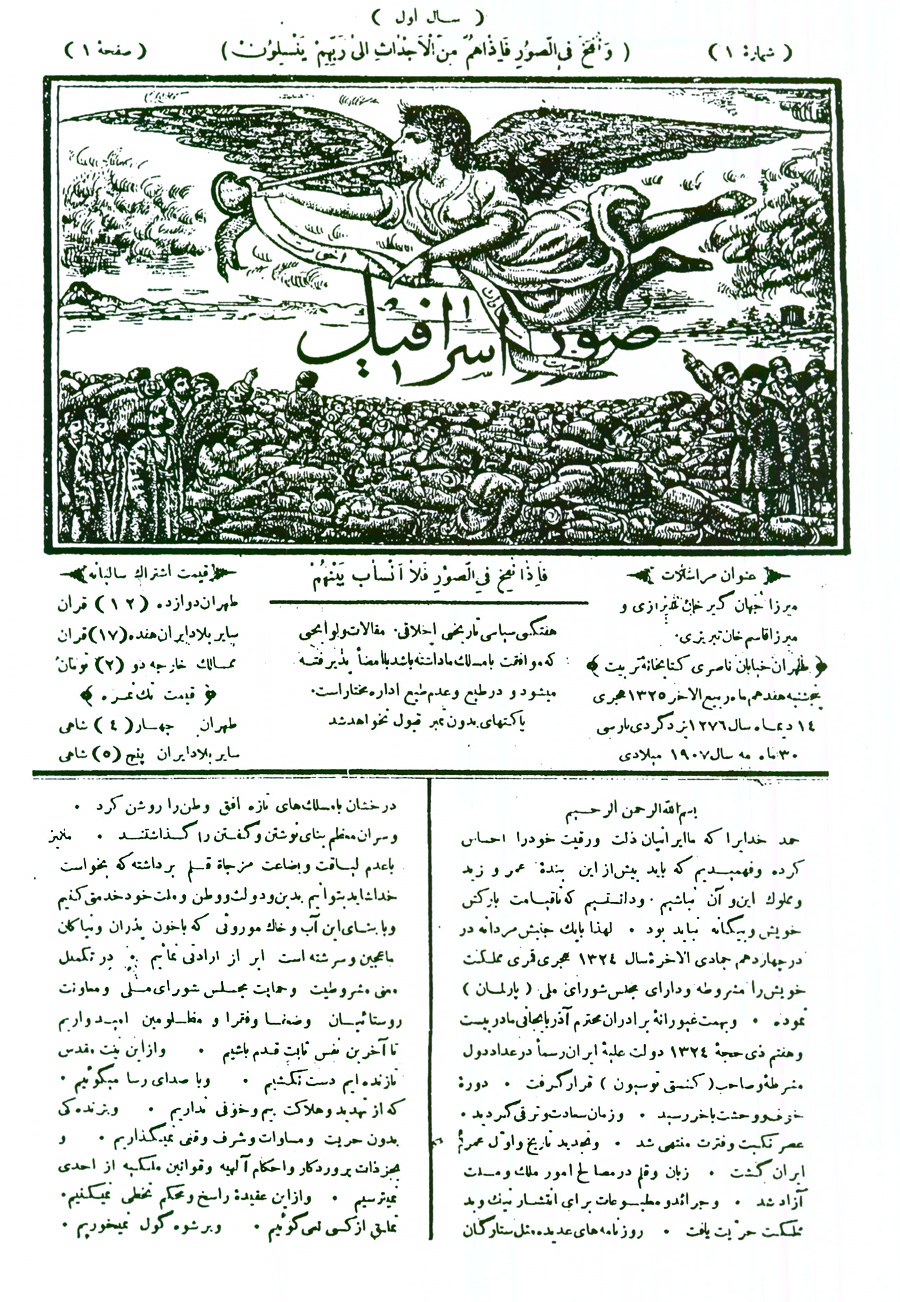 ( سال اول )
( شمارهٔ ۱ )
( وَ نُفِخَ فِي الصّورِ فَاِذاهُمْ مِنَ الْاَجْداثِ اِلیٰ رَبِّهِمْ يَنْسِلُونْ )
( صفحهٔ ۱ )
صور اسرافیل
عنوان مراسلات
میرزا جهان گیر خان شیرازی و
میرزا قاسم خان تبریزی.
( طهران خیابان ناصری کتابخانهٔ تربیت )
پنجشنبه هفدهم ماه ربیع الاخر ۱۳۲۵ هجری
۱۴ دیماه سال ۱۲۷۶ یزدگردی پارسی
۳۰ ماه مه سال ۱۹۰۷ میلادی
فَاِذا نُفِخَ فِي الصّورِ فَلا اَنْسابَ بَيْنَهُمْ
هفتگی سیاسی تاریخی اخلاقی. مقالات ولوایحی
که موافقت با مسلك ما داشته باشد با امضأ پذیرفته
میشود و در طبع و عدم طبع اداره مختار است.
پاکتهای بدون تمبر قبول نخواهد شد
قیمت اشتراك سالیانه
طهران دوازده ( ۱۲ ) قران
سایر بلاد ایران هفده ( ۱۷ ) قران
ممالك خارجه دو ( ۲ ) تومان
( قیمت تك نمره )
طهران چهار ( ۴ ) شاهی
سایر بلاد ایران پنج ( ۵ ) شاهی
بسم الله الرحمن الرحیم
حمد خدایرا که ما ایرانیان ذلت و رقیت خود را احساس
کرده و فهمیدیم که باید بیش از این بندهٔ عمرو و زید
و مملوك این و آن نباشیم . و دانستیم که تا قیامت بارکش
خویش و بیگانه نباید بود . لهذا بایك جنبش مردانه در
چهاردهم جمادی الاخرهٔ سال ۱۳۲۴ هجری قمری مملکت
خویش را مشروطه و دارای مجلس شورای ملی ( پارلمان )
نموده . و بهمت غیورانهٔ برادران محترم آذربایجانی ما در بیست
و هفتم ذی حجهٔ ۱۳۲۴ دولت علیهٔ ایران رسماً در عداد دول
مشروطه و صاحب ( کنستی توسیون ) قرار گرفت . دورهٔ
خوف و وحشت باخر رسید . و زمان سعادت و ترقی گردید .
عصر نکبت و فترت منتهی شد . و تجدید تاریخ و اول عمر
ایران گشت . زبان و قلم در مصالح امور ملك و ملت
آزاد شد . و جرائد و مطبوعات برای انتشار نیك و بد
مملکت حریت یافت . روزنامه های عدیده مثل ستارگان
درخشان با مسلك های تازه افق وطن را روشن کرد .
و سران معظم بنای نوشتن و گفتن را گذاشتند . ما نیز
باعدم لیاقت و بضاعت مزجاة قلم برداشته که بخواست
خدا شاید بتوانیم بدین و دولت و وطن و ملت خود خدمتی کنیم
و باین آب و خاك موروثی که با خون پدران و نیاکان
ما عجین و سرشته است ابراز ارادتی نمائیم . در تکمیل
معنی مشروطیت و حمایت مجلس شورای ملی و معاونت
روستائیان و ضعفا و فقرا و مظلومین امیدواریم
تا آخرین نفس ثابت قدم باشیم . و از این نیت مقدس
تا زنده ایم دست نکشیم . و با صدای رسا میگوئیم .
که از تهدید و هلاکت بیم و خوفی نداریم . و بزندگی
بدون حریت و مساوات و شرف وقعی نمیگذاریم . و
بجز ذات پروردگار و احکام آلهیه و قوانین ملکیه از احدی
نمیترسیم . و از این عقیدهٔ راسخ و محکم تخطی نمیکنیم .
تملق از کسی نمی گوئیم . و برشوه گول نمیخوریم .